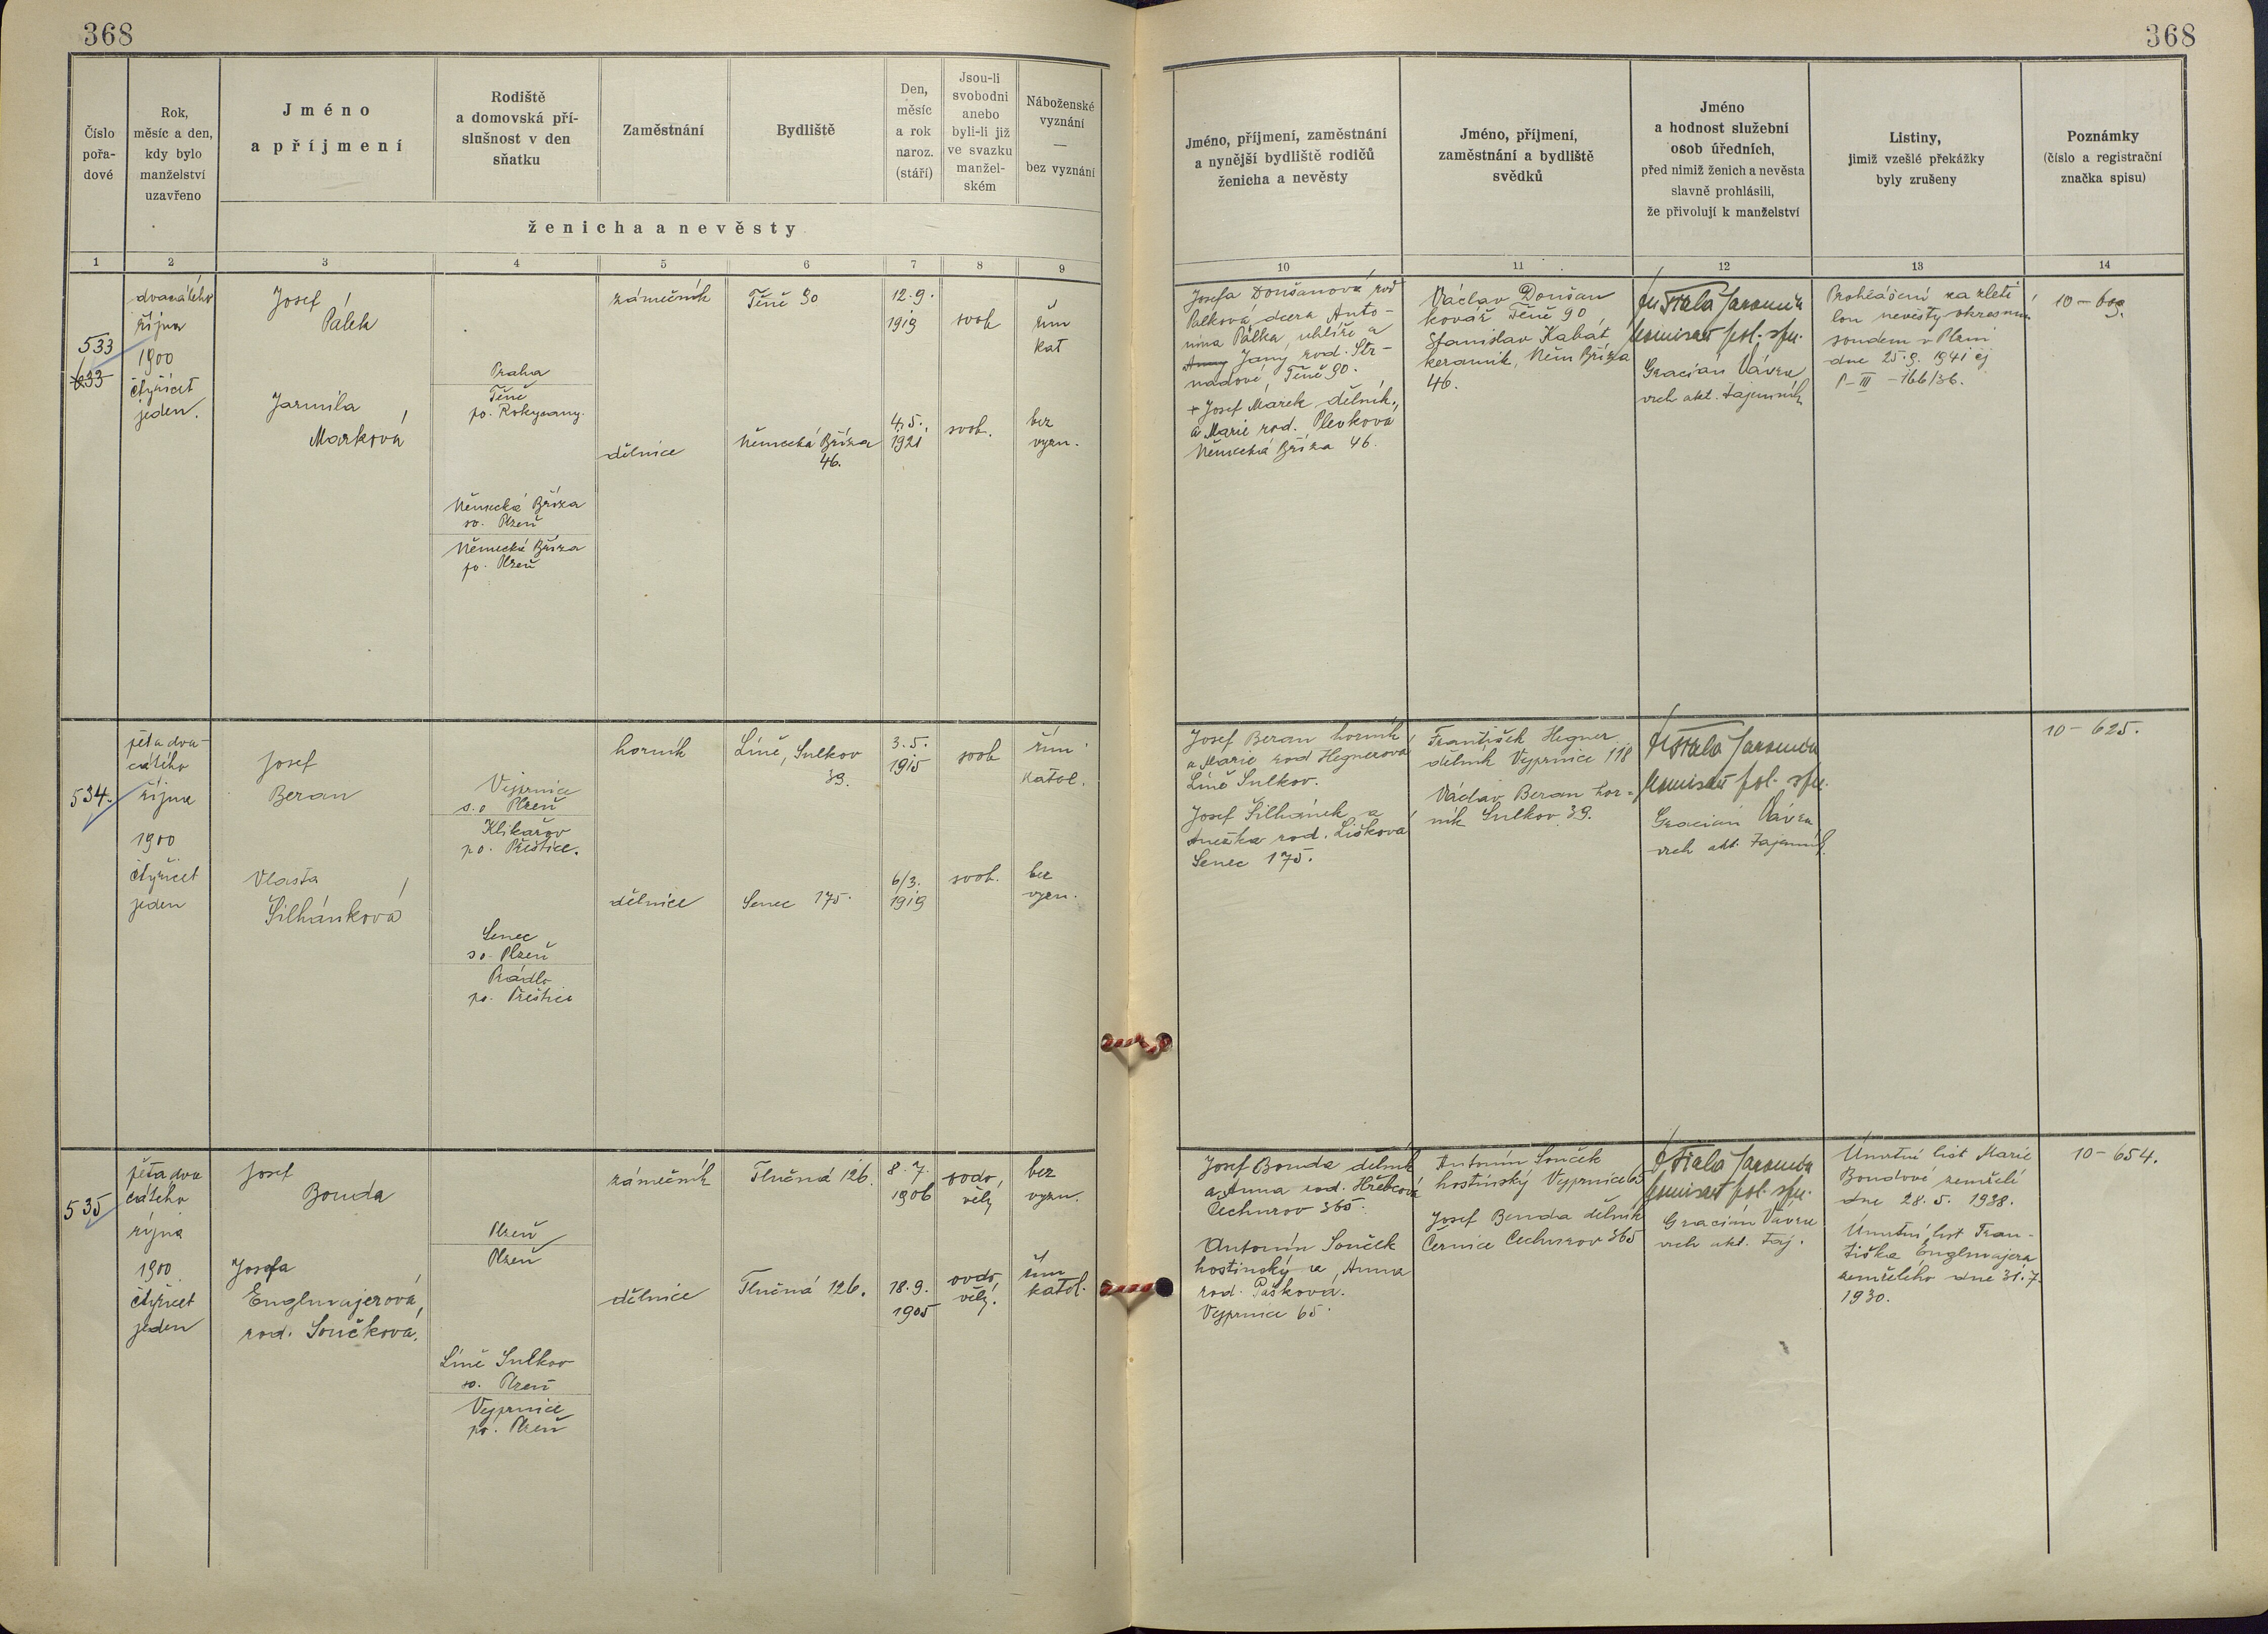 368
368
Číslo
pořa-
dové
Rok,
měsíc a den,
kdy bylo
manželství
uzavřeno
Jméno
a příjmení
Rodiště
a domovská pří-
slušnost v den
sňatku
Zaměstnání
Bydliště
Den,
měsíc
a rok
naroz.
(stáří)
Jsou-li
svobodni
anebo
byli-li již
ve svazku
manžel-
ském
Náboženské
vyznání
—
bez vyznání
ženicha a nevěsty
Jméno, příjmení, zaměstnání
a nynější bydliště rodičů
ženicha a nevěsty
Jméno, příjmení,
zaměstnání a bydliště
svědků
Jméno
a hodnost služební
osob úředních,
před nimiž ženich a nevěsta
slavně prohlásili,
že přivolují k manželství
Listiny,
jimiž vzešlé překážky
byly zrušeny
Poznámky
(číslo a registrační
značka spisu)
1
2
3
4
5
6
7
8
9
10
11
12
13
14
533
633
dvanáctého
října
1900
čtyřicet
jeden.
Josef
Pálek
Jarmila
Marková
Praha
Těně
po. Rokycany.
Německá Bříza
so. Plzeň
Německá Bříza
po. Plzeň
zámečník
dělnice
Těně 90
Německá Bříza
46.
12.9.
1919
4.5.
1921
svob
svob.
řím
kat
bez
vyzn.
Josefa Doušanová roz
Palková dcera Anto-
nína Pálka, uhlíře a
Anny Jany rod. Str-
nadové, Těně 90.
+ Josef Marek dělník,
a Marie rod. Plevková
Německá Bříza 46.
Václav Doušan
kovář Těně 90
Stanislav Kabát,
keramik, Něm Bříza
46.
Fiala Jaromír
komisař pol. spr.
Gracián Vávra
vrch akt. tajemník
Prohlášení za zleti
lou nevěsty okresním
soudem v Plzni
dne 25.9. 1941 čj
P-III-166/36.
10-609.
534.
pětadva-
cátého
října
1900
čtyřicet
jeden
Josef
Beran
Vlasta
Šilhánková
Vejprnice
s.o Plzeň
Klikařov
po. Přeštice.
Senec
so. Plzeň
Prádlo
po. Přeštice
horník
dělnice
Líně, Sulkov
39.
Senec 175.
3.5.
1915
6/3.
1919
svob
svob.
řím
katol.
bez
vyzn.
Josef Beran horník
a Marie rod Hegnerová
Líně Sulkov.
Josef Šilhánek a
Anežka rod. Lišková
Senec 175.
František Hegner
dělník Vejprnice 118
Václav Beran hor-
ník Sulkov 39.
Fiala Jaromír
komisař pol. spr.
Gracián Vávra
vrch akt. tajemník.
10-625.
535
pětadva
cátého
října
1900
čtyřicet
jeden
Josef
Bouda
Josefa
Englmajerová,
rod. Součková.
Plzeň
Plzeň
Líně Sulkov
so. Plzeň
Vejprnice
po. Plzeň
zámečník
dělnice
Tlučná 126.
Tlučná 126.
8.7.
1906
18.9.
1905
ovdo,
vělý
ovdo,
vělý.
bez
vyzn.
řím
katol.
Josef Bouda dělník
a Anna rod. Hřebcová
Čechurov 365.
Antonín Souček
hostinský a Anna
rod. Pašková.
Vejprnice 65.
Antonín Souček
hostinský Vejprnice 65
Josef Bouda dělník
Černice Čechurov 365
Fiala Jaromír
komisař pol. spr.
Gracián Vávra
vrch akt. taj.
Úmrtní list Marie
Boudové zemřelé
dne 28.5. 1938.
Úmrtní list Fran-
tiška Englmajera
zemřelého dne 31.7.
1930.
10-654.